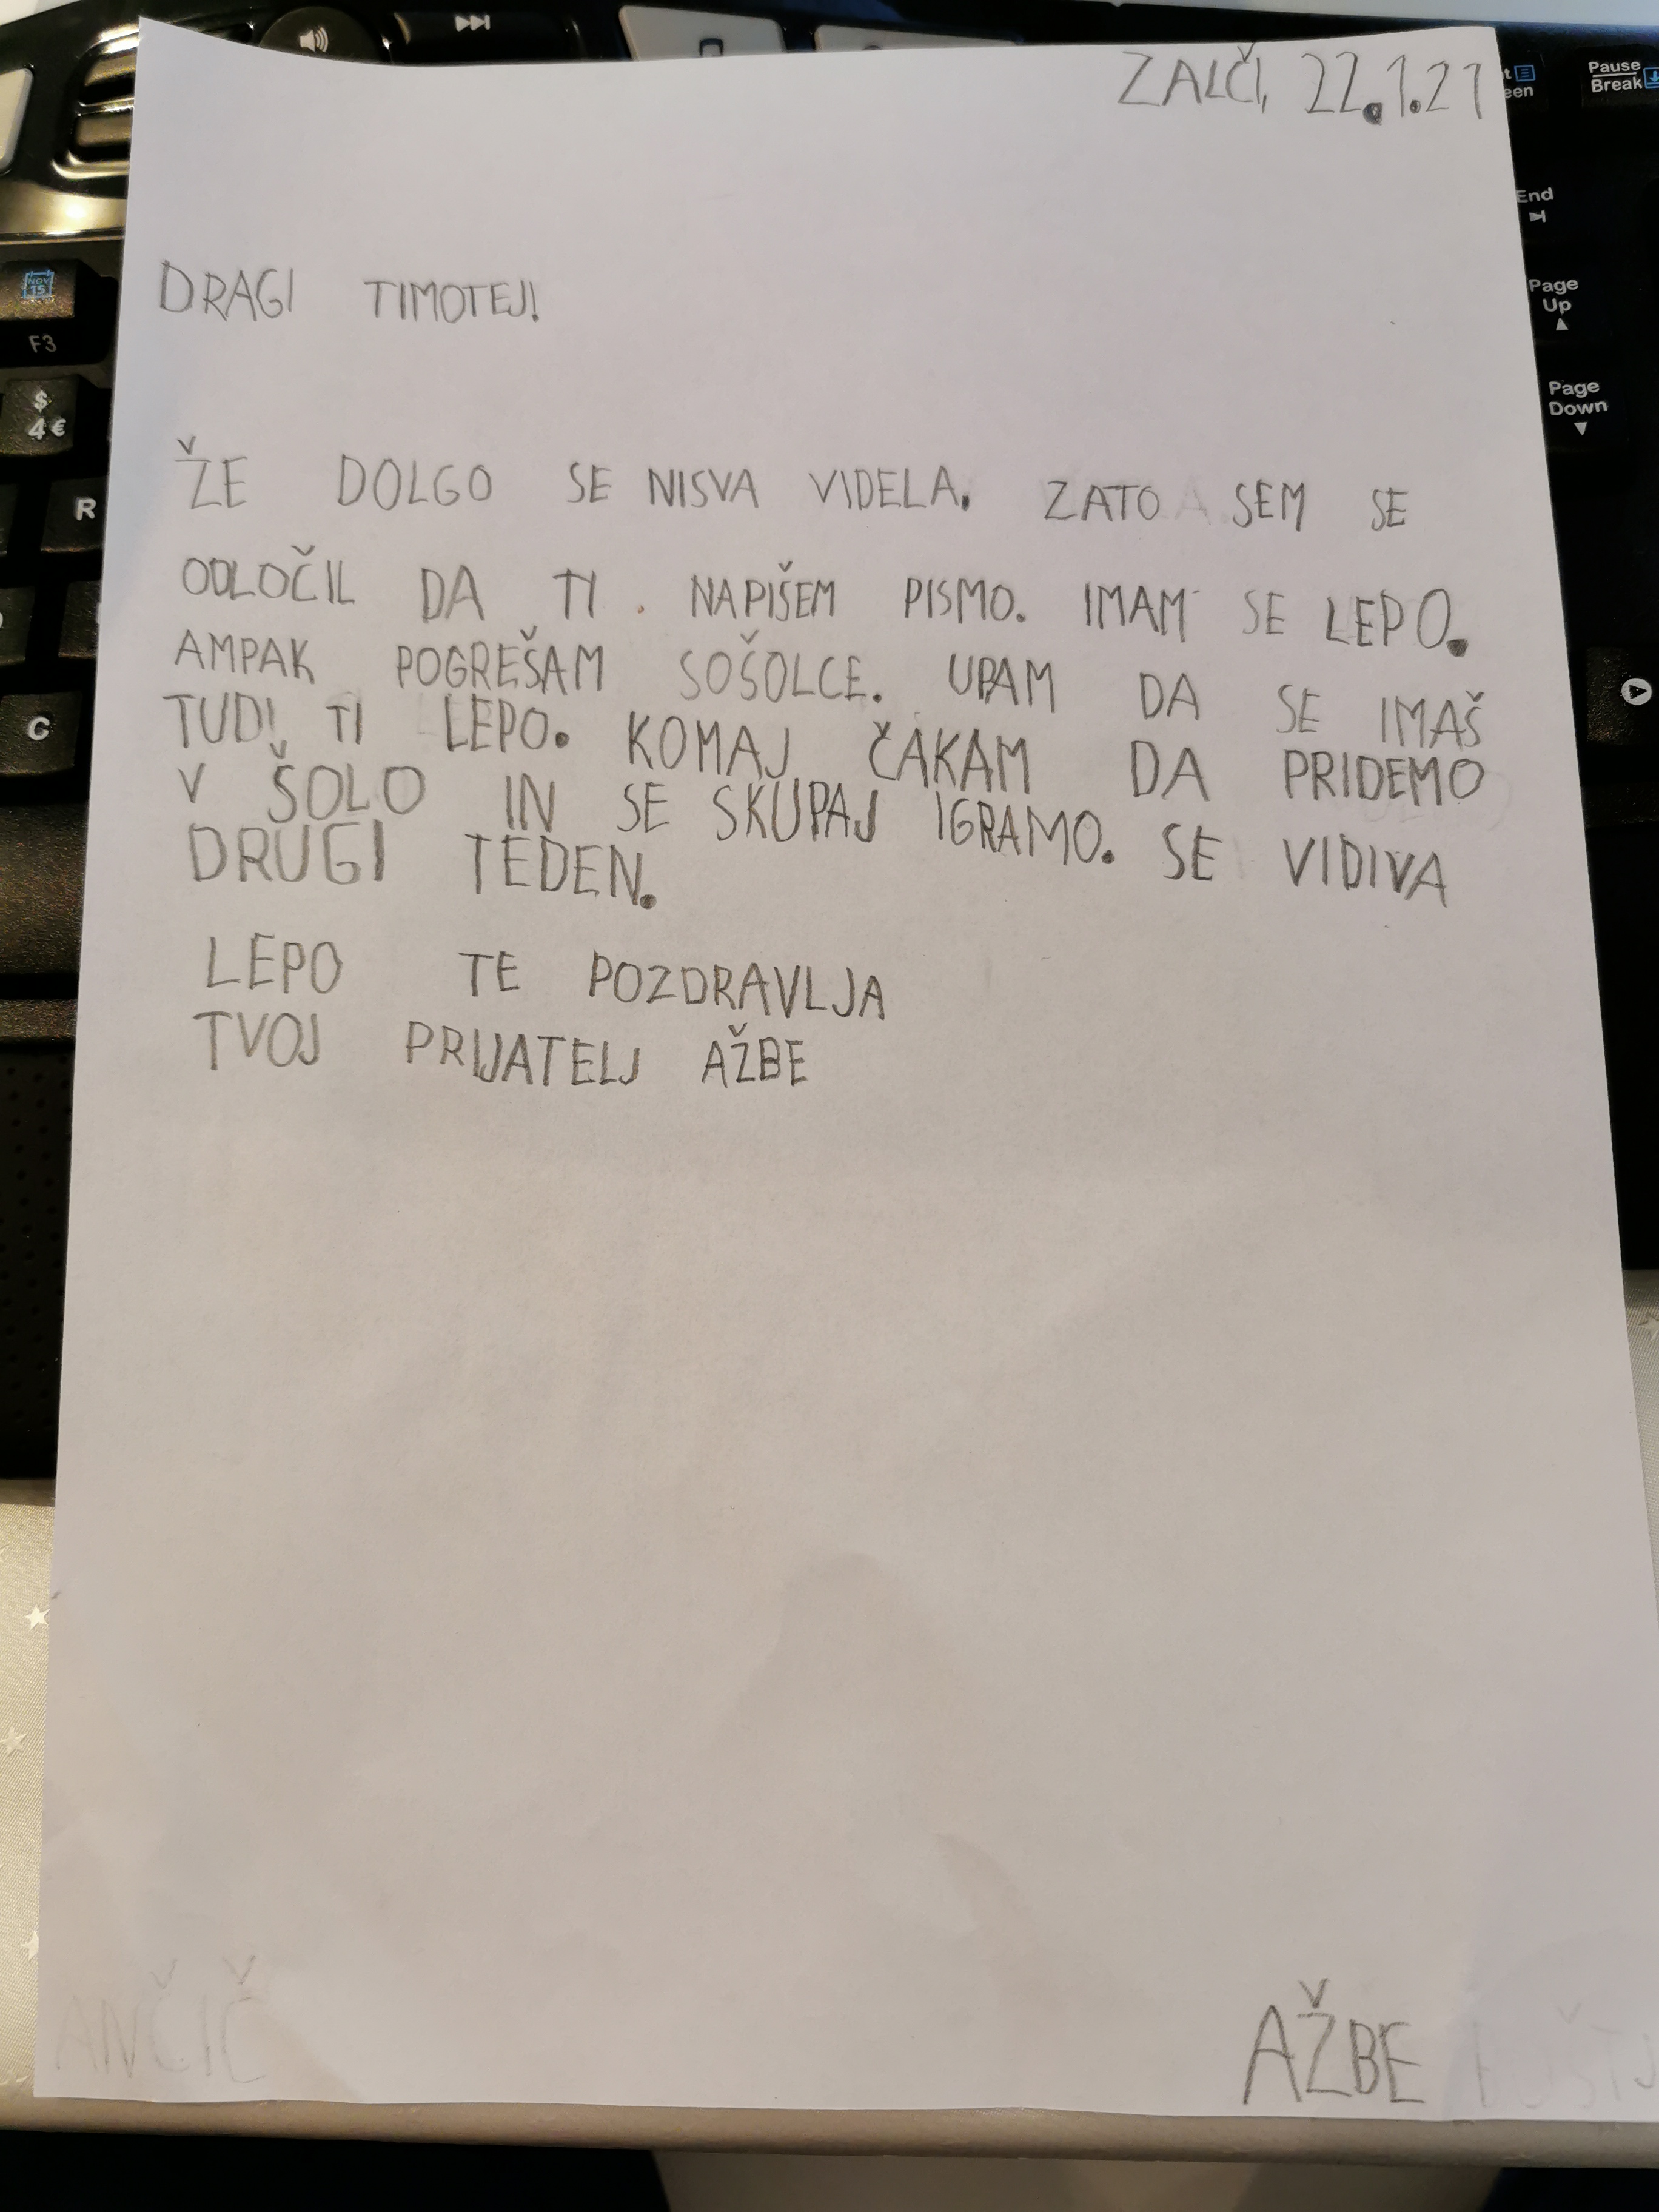 ZALČI, 22.1.21
DRAGI TIMOTEJ!
ŽE DOLGO SE NISVA VIDELA. ZATO SEM SE
ODLOČIL DA TI NAPIŠEM PISMO. IMAM SE LEPO.
AMPAK POGREŠAM SOŠOLCE. UPAM DA SE IMAŠ
TUDI TI LEPO. KOMAJ ČAKAM DA PRIDEMO
V ŠOLO IN SE SKUPAJ IGRAMO. SE VIDIVA
DRUGI TEDEN.
LEPO TE POZDRAVLJA
TVOJ PRIJATELJ AŽBE
ANČIČ
AŽBE
Pause
Break
End
Page
Up
Page
Down
NOV
15
F3
$
4 €
R
C